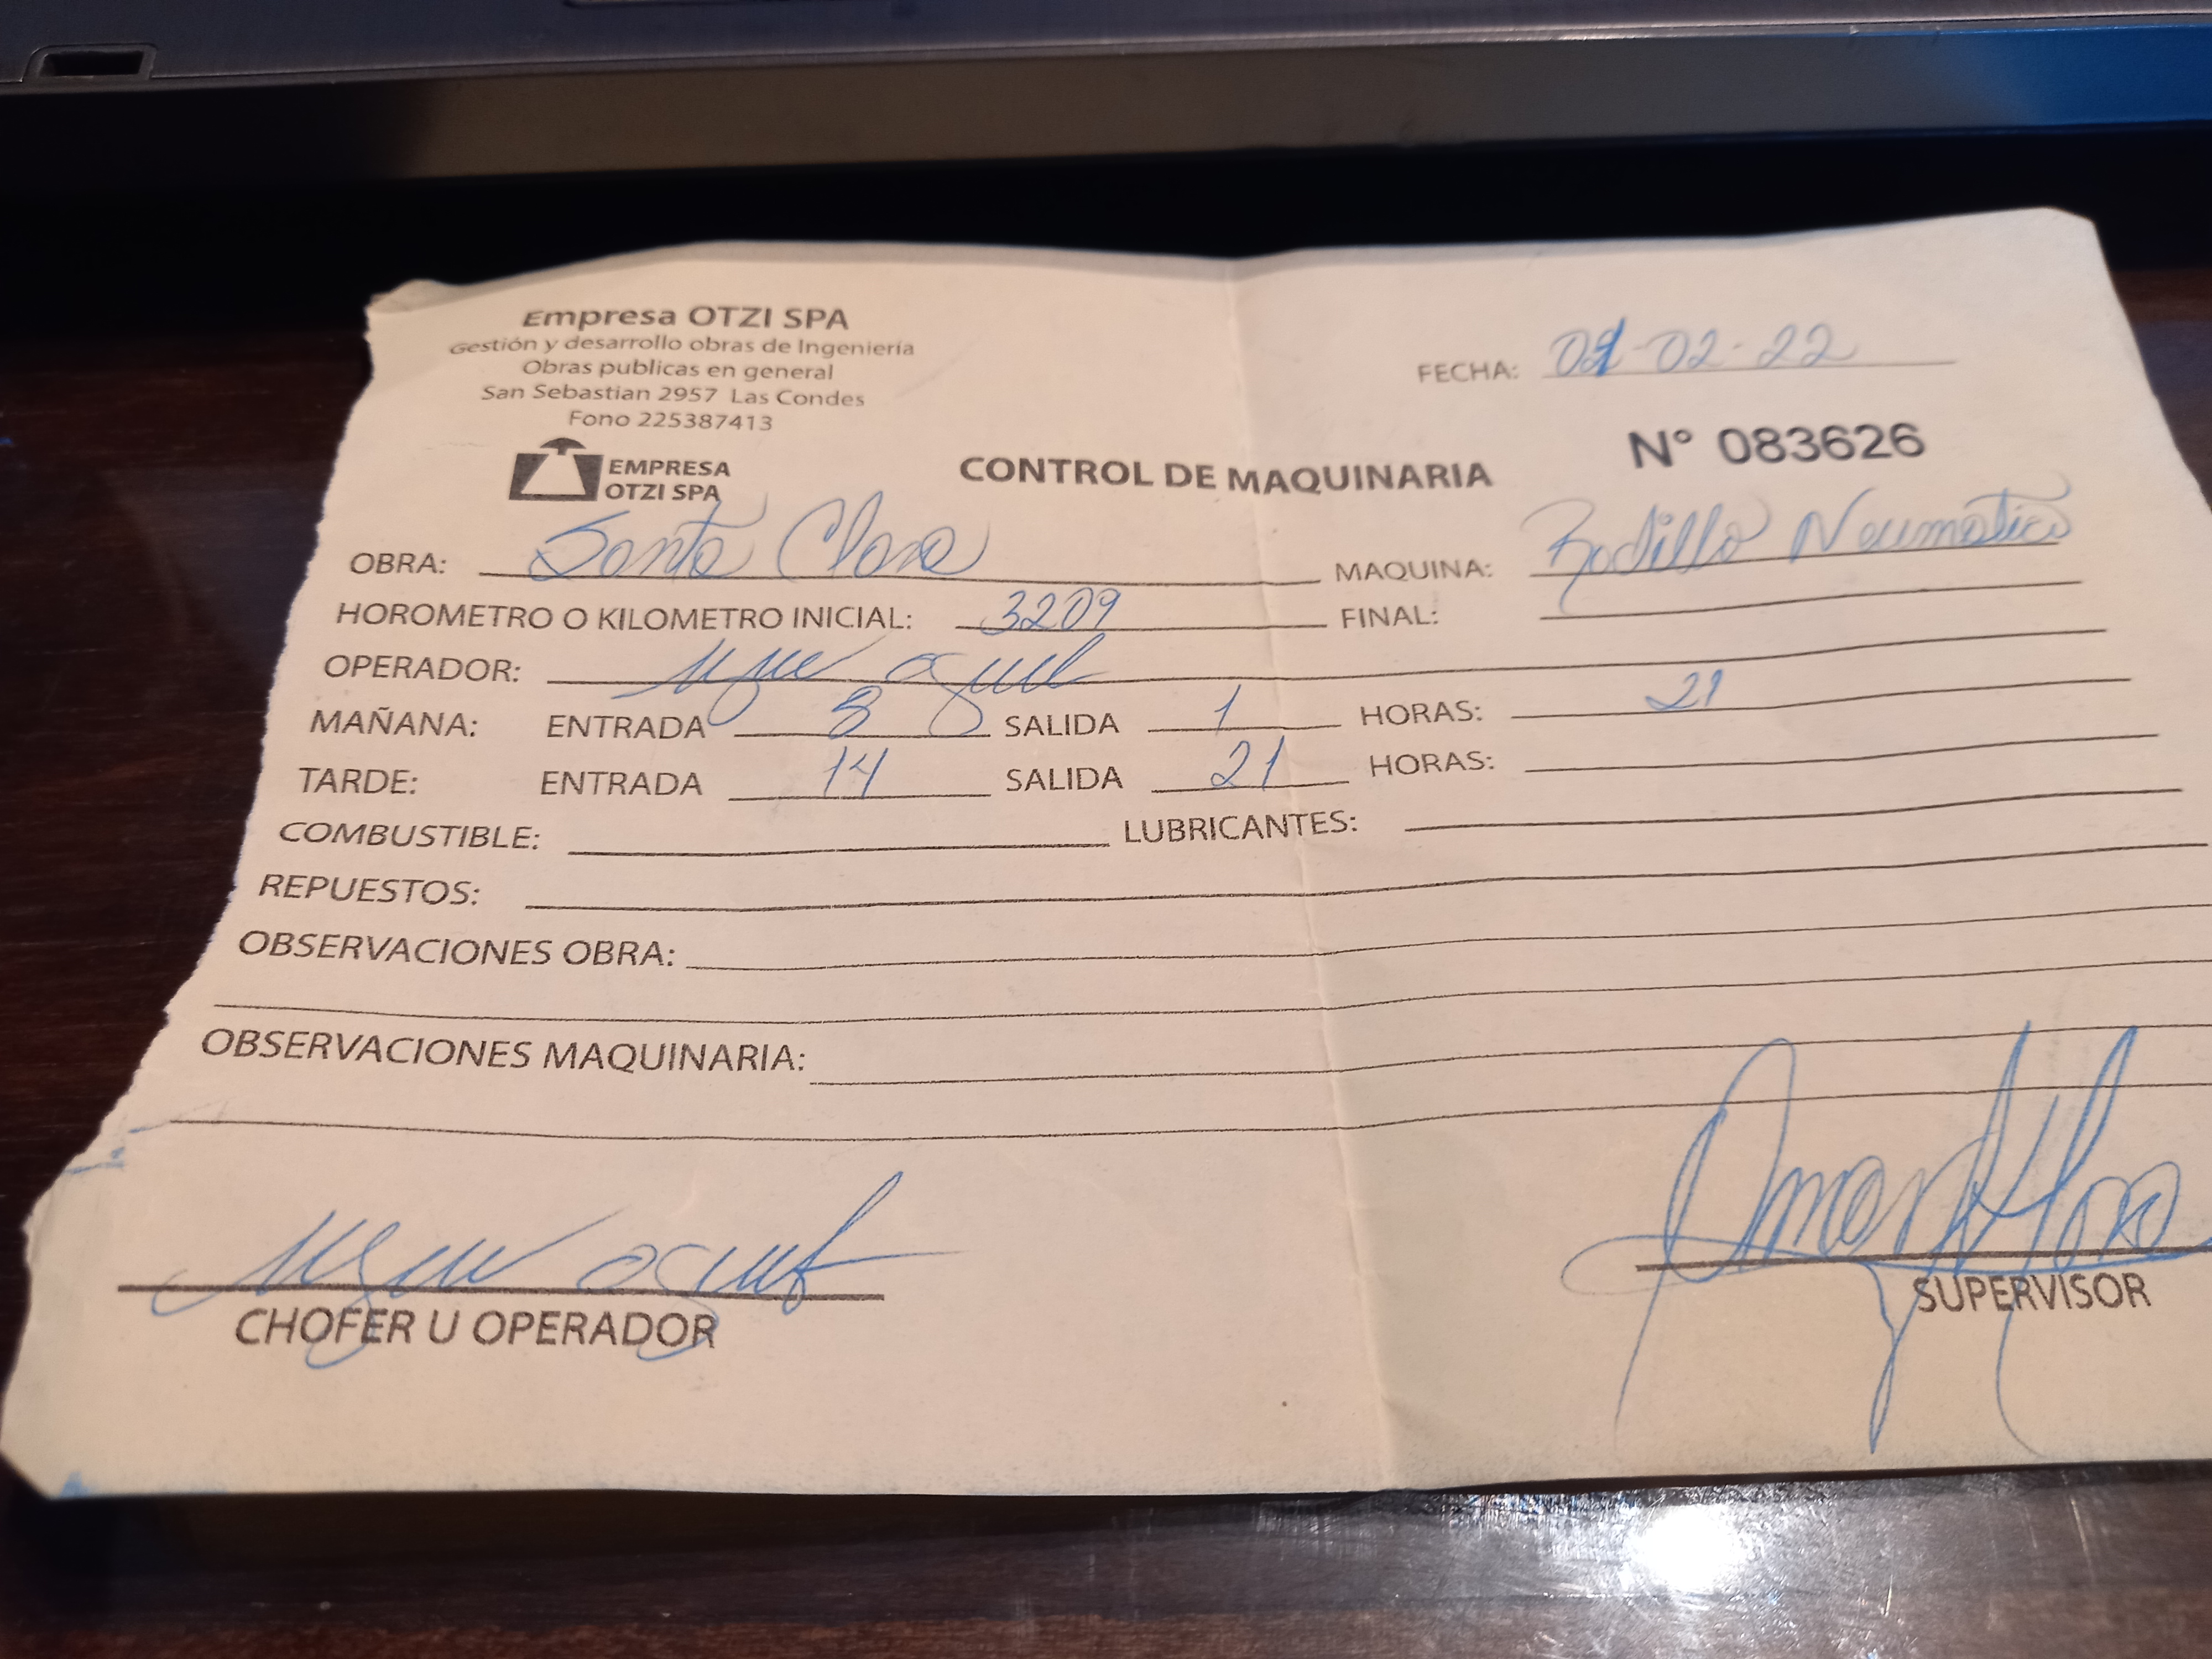 Empresa OTZI SPA
Gestión y desarrollo obras de Ingeniería
Obras publicas en general
San Sebastian 2957 Las Condes
Fono 225387413
EMPRESA
OTZI SPA
FECHA: -02-22
N° 083626
CONTROL DE MAQUINARIA
OBRA: Santa Clara MAQUINA: Rodillo Neumatico
HOROMETRO O KILOMETRO INICIAL: 3209 FINAL:
OPERADOR:
MAÑANA: ENTRADA 8 SALIDA 1 HORAS: 21
TARDE: ENTRADA 14 SALIDA 21 HORAS:
COMBUSTIBLE: LUBRICANTES:
REPUESTOS:
OBSERVACIONES OBRA:
OBSERVACIONES MAQUINARIA:
CHOFER U OPERADOR
SUPERVISOR